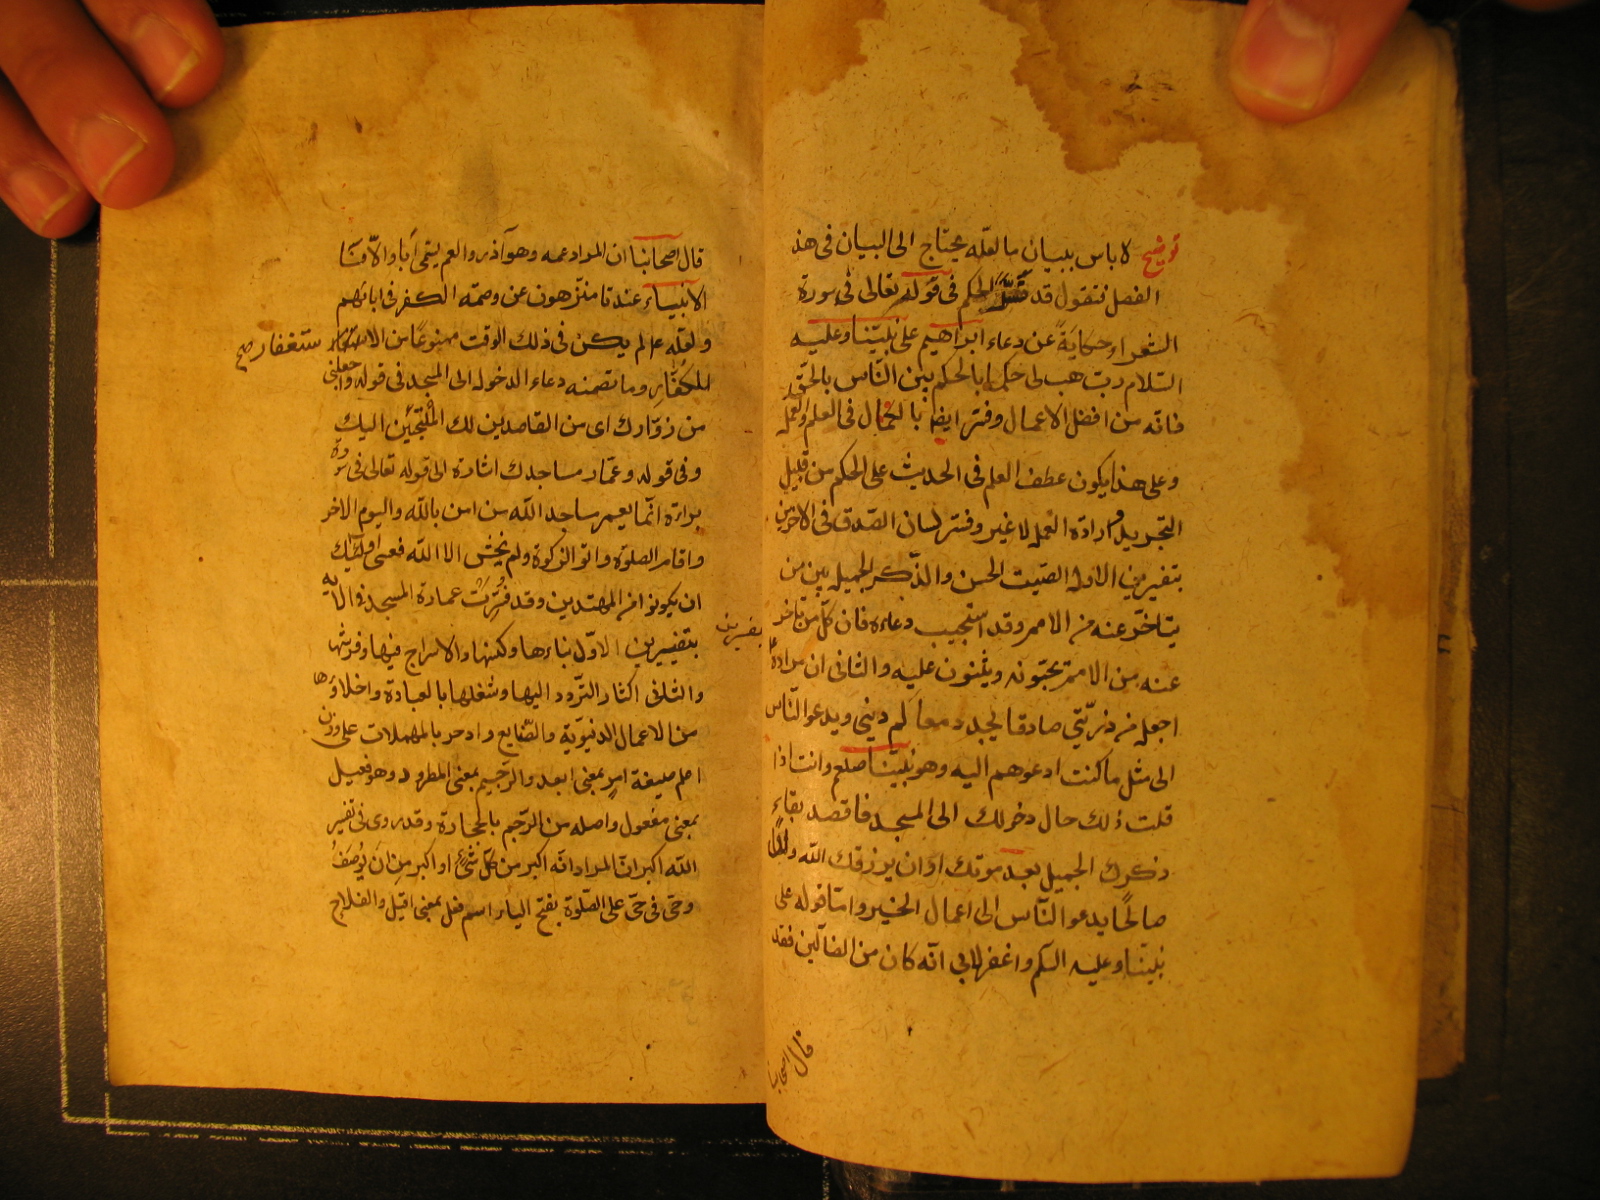 توضيح لا باس ببيان ما لعله يحتاج الى البيان فى هذ
الفصل فنقول قد فسر الحكم فى قوله تعالى فى سورة
الشعرا وحكاية عن دعاء ابراهيم على نبيّنا وعليه
السّلام ربّ هب لى حكما بالحكم بين النّاس بالحقّ
فانّه من افضل الاعمال وفسر ايضا بالكمال فى العلم والعمل
وعلى هذا يكون عطف العلم فى الحديث على الحكم من قبيل
التجريد وارادة العمل لا غير وفسر لسان الصّدق فى الاخرين
بتفسيرين الاول الصّيت الحسن والذّكر الجميل بين من
يتاخّر عنه من الامم وقد استجيب دعاءه فان كلّ من تاخّر
عنه من الامم يحبّونه ويثنون عليه والثانى ان مراده
اجعل من ذريّتي صادقا يجدد معالم ديني ويدعو النّاس
الى مثل ما كنت ادعوهم اليه وهو نبيّنا صلعم وانت اذا
قلت ذلك حال دخولك الى المسجد فاقصد بقاء
ذكرك الجميل بعد موتك او ان يرزقك اللّه ولدًا
صالحًا يدعو النّاس الى اعمال الخير وامّا قوله على
نبيّنا وعليه السلم واغفر لابي انّه كان من الضالّين فقد
قال اصحابنا
قال اصحابنا ان المراد عمه وهو آذر والعم يسمّى أبا والّا فآباء
الانبياء عندنا منزّهون عن وصمة الكفر فى ابائهم
ولعلّه ع لم يكن فى ذلك الوقت ممنوعًا من الاستغفار
ستغفار صح
للكفّار وما تضمنه دعاء الدخول الى المسجد فى قوله واجعلنى
من زوّارك اى من القاصدين لك الملتجئين اليك
وفى قوله وعمّار مساجدك اشارة الى قوله تعالى فى سورة
براءة انّما يعمر مساجد اللّه من امن باللّه واليوم الاخر
واقام الصلوة واتو الزكوة ولم يخش الا اللّه فعسى اولئك
ان يكونوا من المهتدين وقد فسّرت عمارة المسجد فى الاية
بتفسيرين
بتفسيرين الاوّل بناءها وكنسها والاسراج فيها وفرشها
والثانى اكثار التردد اليها وشغلها بالعبادة واخلاؤها
من الاعمال الدنيويّة والصّنايع وادحر بالمهملات على وزن
اعلم صيغة امر بمعنى ابعد والرّجيم بمعنى المطرود وهو فعيل
بمعنى مفعول واصله من الرّجم بالحجارة وقد روى فى تفسير
اللّه اكبر انّ المراد انّه اكبر من كلّ شئ او اكبر من ان يوصف
وحىّ فى حىّ على الصّلوة بفتح الياء اسم فعل بمعنى اقبل والفلاح